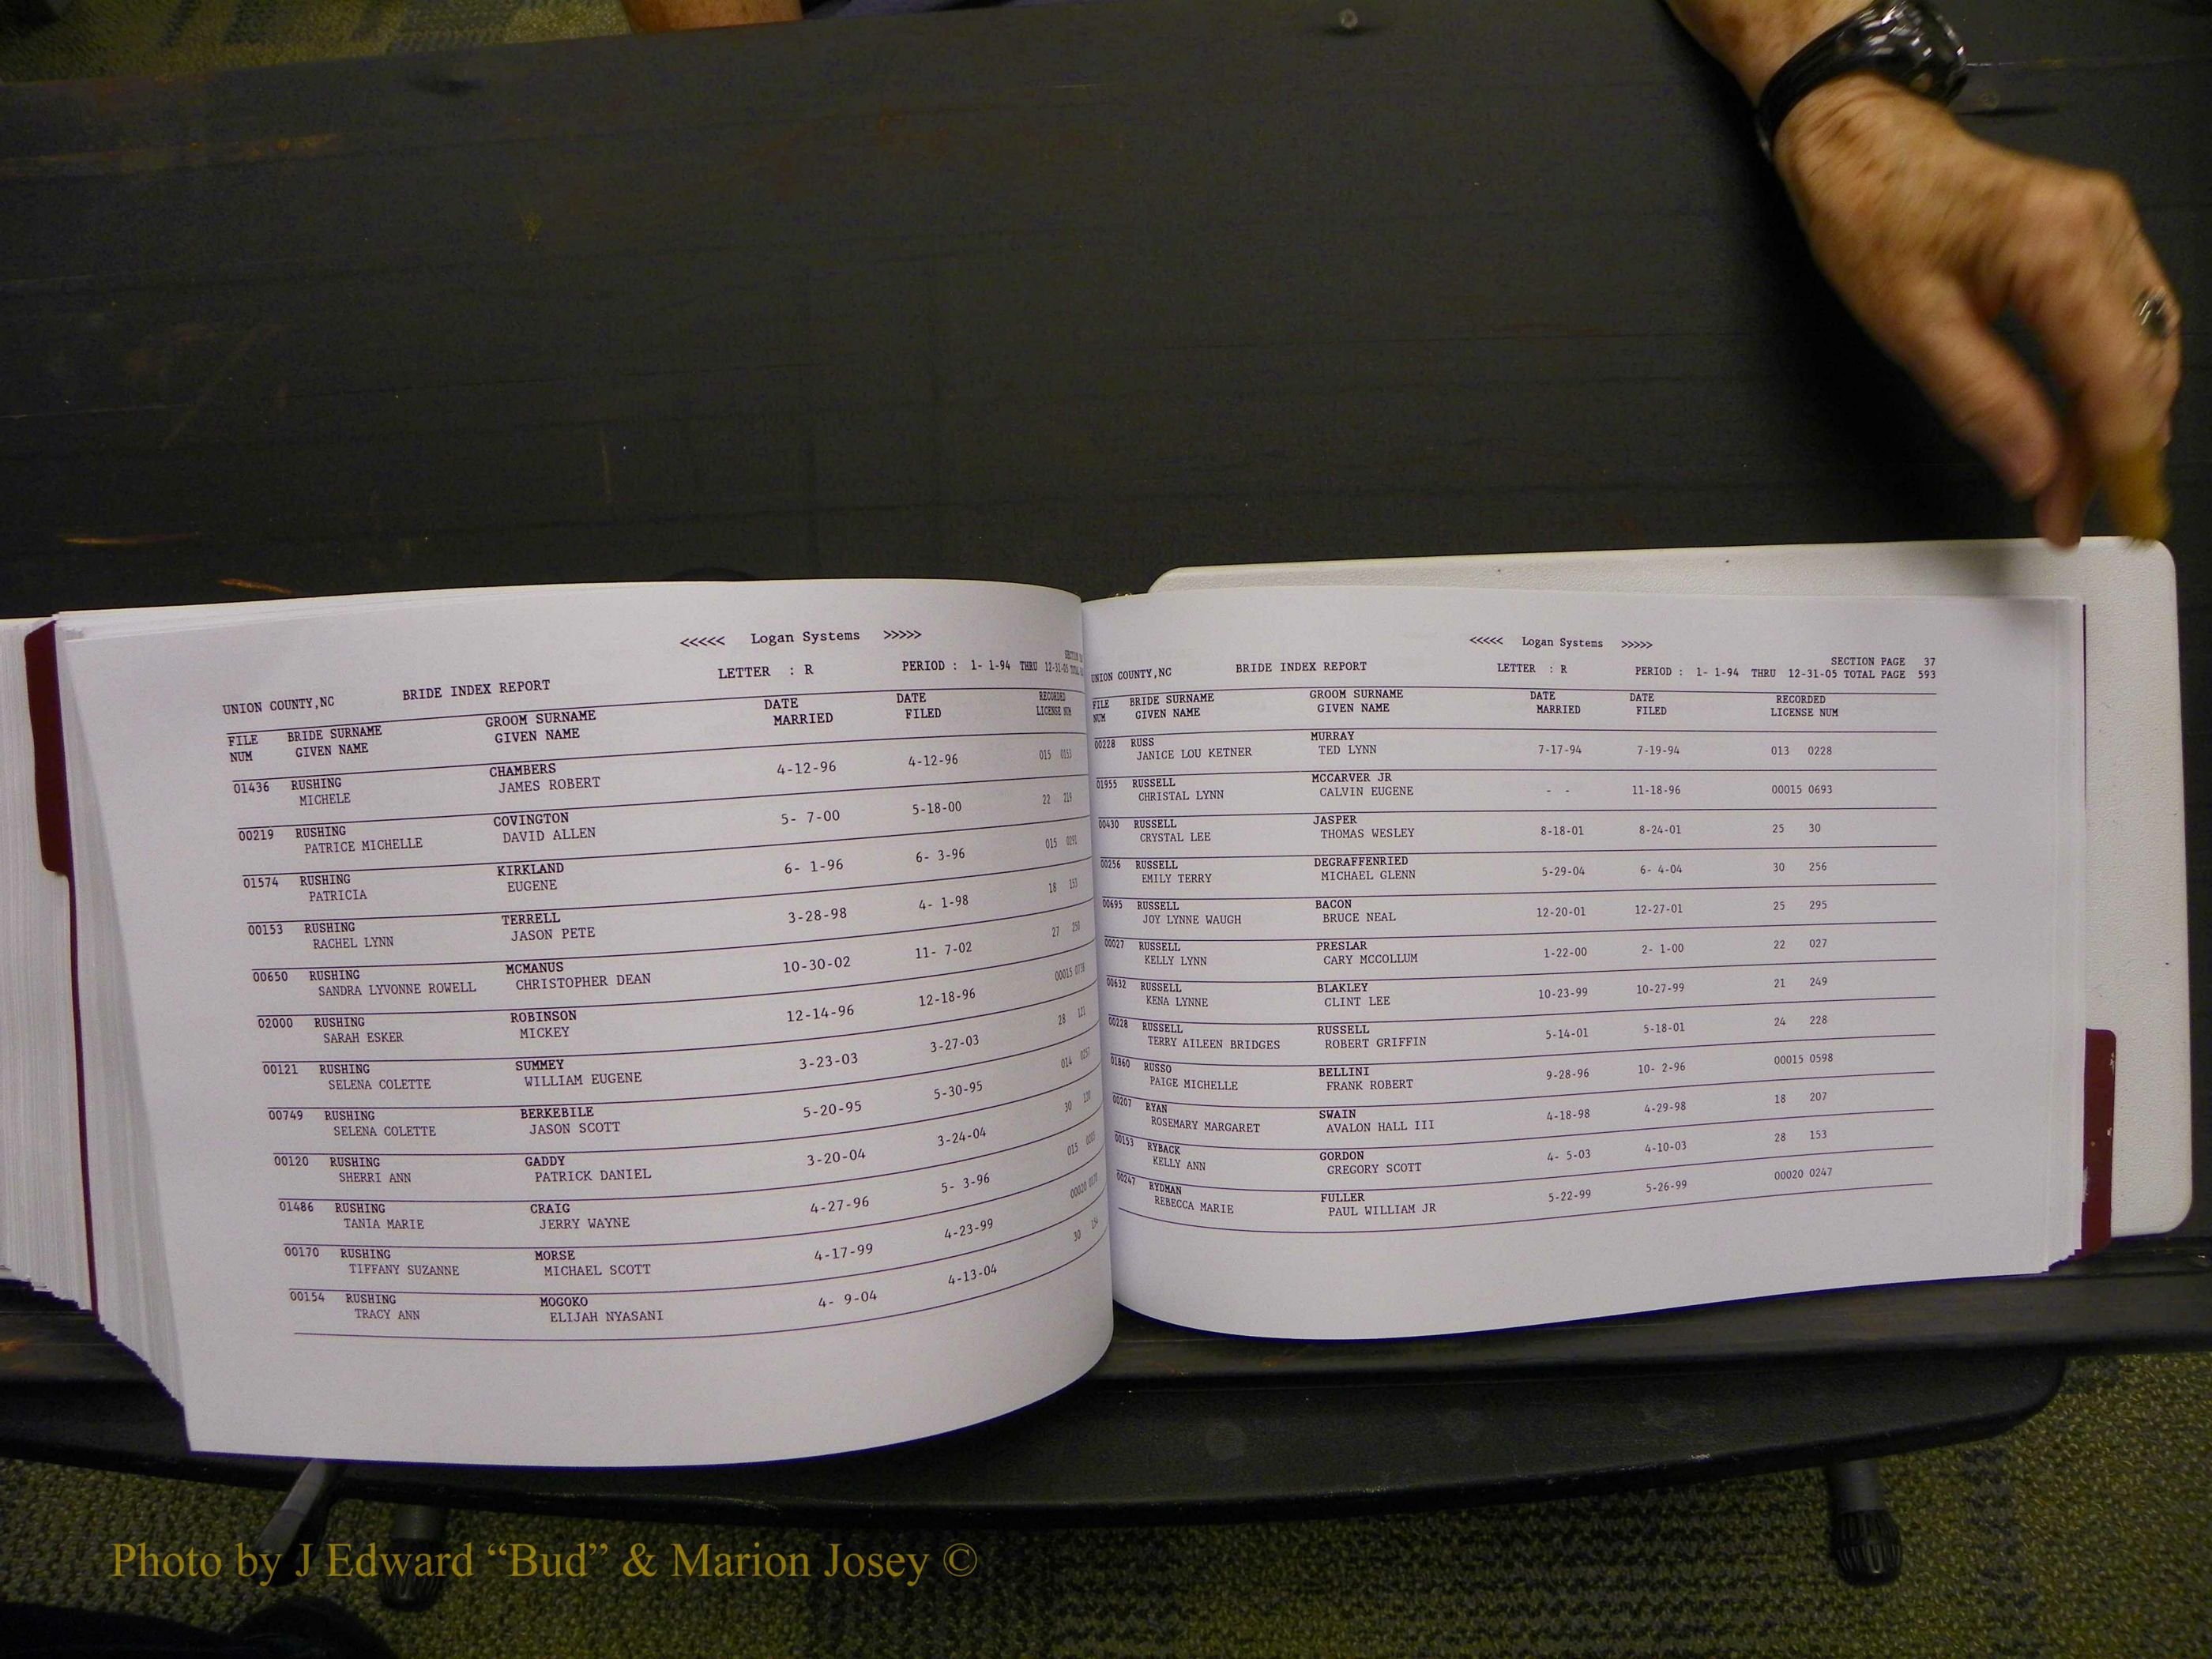 <<<<< Logan Systems >>>>>
UNION COUNTY,NC BRIDE INDEX REPORT LETTER : R PERIOD : 1- 1-94 THRU 12-31-05
FILE BRIDE SURNAME GROOM SURNAME DATE DATE RECORDED
NUM GIVEN NAME GIVEN NAME MARRIED FILED LICENSE NUM
01436 RUSHING CHAMBERS 4-12-96 4-12-96 015 0153
MICHELE JAMES ROBERT
00219 RUSHING COVINGTON 5- 7-00 5-18-00 22 219
PATRICE MICHELLE DAVID ALLEN
01574 RUSHING KIRKLAND 6- 1-96 6- 3-96 015 0291
PATRICIA EUGENE
00153 RUSHING TERRELL 3-28-98 4- 1-98 18 153
RACHEL LYNN JASON PETE
00650 RUSHING MCMANUS 10-30-02 11- 7-02 27 250
SANDRA LYVONNE ROWELL CHRISTOPHER DEAN
02000 RUSHING ROBINSON 12-14-96 12-18-96 00015
SARAH ESKER MICKEY
00121 RUSHING SUMMEY 3-23-03 3-27-03 28 121
SELENA COLETTE WILLIAM EUGENE
00749 RUSHING BERKEBILE 5-20-95 5-30-95 014
SELENA COLETTE JASON SCOTT
00120 RUSHING GADDY 3-20-04 3-24-04 30 120
SHERRI ANN PATRICK DANIEL
01486 RUSHING CRAIG 4-27-96 5- 3-96 015
TANIA MARIE JERRY WAYNE
00170 RUSHING MORSE 4-17-99 4-23-99 00020 0170
TIFFANY SUZANNE MICHAEL SCOTT
00154 RUSHING MOGOKO 4- 9-04 4-13-04 30 154
TRACY ANN ELIJAH NYASANI
<<<<< Logan Systems >>>>>
SECTION PAGE 37
UNION COUNTY,NC BRIDE INDEX REPORT LETTER : R PERIOD : 1- 1-94 THRU 12-31-05 TOTAL PAGE 593
FILE BRIDE SURNAME GROOM SURNAME DATE DATE RECORDED
NUM GIVEN NAME GIVEN NAME MARRIED FILED LICENSE NUM
00228 RUSS MURRAY 7-17-94 7-19-94 013 0228
JANICE LOU KETNER TED LYNN
01955 RUSSELL MCCARVER JR - - 11-18-96 00015 0693
CHRISTAL LYNN CALVIN EUGENE
00430 RUSSELL JASPER 8-18-01 8-24-01 25 30
CRYSTAL LEE THOMAS WESLEY
00256 RUSSELL DEGRAFFENRIED 5-29-04 6- 4-04 30 256
EMILY TERRY MICHAEL GLENN
00695 RUSSELL BACON 12-20-01 12-27-01 25 295
JOY LYNNE WAUGH BRUCE NEAL
00027 RUSSELL PRESLAR 1-22-00 2- 1-00 22 027
KELLY LYNN CARY MCCOLLUM
00632 RUSSELL BLAKLEY 10-23-99 10-27-99 21 249
KENA LYNNE CLINT LEE
00228 RUSSELL RUSSELL 5-14-01 5-18-01 24 228
TERRY AILEEN BRIDGES ROBERT GRIFFIN
01860 RUSSO BELLINI 9-28-96 10- 2-96 00015 0598
PAIGE MICHELLE FRANK ROBERT
00207 RYAN SWAIN 4-18-98 4-29-98 18 207
ROSEMARY MARGARET AVALON HALL III
00153 RYBACK GORDON 4- 5-03 4-10-03 28 153
KELLY ANN GREGORY SCOTT
00247 RYDMAN FULLER 5-22-99 5-26-99 00020 0247
REBECCA MARIE PAUL WILLIAM JR
Photo by J Edward “Bud” & Marion Josey ©